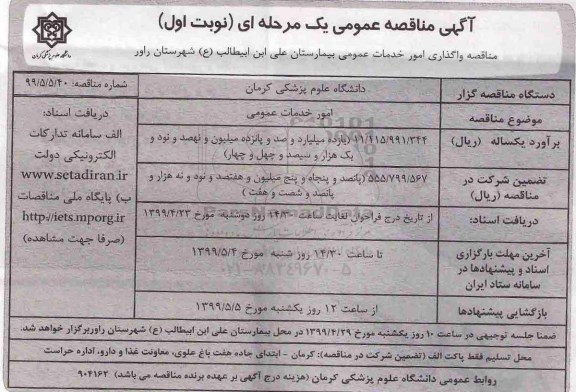 آگهی مناقصه عمومی یک مرحله ای (نوبت اول)
مناقصه واگذاری امور خدمات عمومی بیمارستان علی ابن ابیطالب (ع) شهرستان راور
دستگاه مناقصه گزار
دانشگاه علوم پزشکی کرمان
شماره مناقصه: ۹۹/۵/۵/۴۰
موضوع مناقصه
امور خدمات عمومی
برآورد یکساله (ریال)
۱۱/۱۱۵/۹۹۱/۳۴۴ (یازده میلیارد و صد و پانزده میلیون و نهصد و نود و
یک هزار و سیصد و چهل و چهار)
تضمین شرکت در
مناقصه (ریال)
۵۵۵/۷۹۹/۵۶۷ (پانصد و پنجاه و پنج میلیون و هفتصد و نود و نه هزار و
پانصد و شصت و هفت )
دریافت اسناد:
از تاریخ درج فراخوان لغایت ساعت ۱۴/۳۰ روز دوشنبه مورخ ۱۳۹۹/۴/۲۳
آخرین مهلت بارگزاری
اسناد و پیشنهادها در
سامانه ستاد ایران
تا ساعت ۱۴/۳۰ روز شنبه مورخ ۱۳۹۹/۵/۴
بازگشایی پیشنهادها
از ساعت ۱۲ روز یکشنبه مورخ ۱۳۹۹/۵/۵
دریافت اسناد:
الف سامانه تدارکات
الکترونیکی دولت
www.setadiran.ir
ب) پایگاه ملی مناقصات
http://iets.mporg.ir
(صرفا جهت مشاهده)
ضمنا جلسه توجیهی در ساعت ۱۰ روز یکشنبه مورخ ۱۳۹۹/۴/۲۹ در محل بیمارستان علی ابن ابیطالب (ع) شهرستان راوربرگزار خواهد شد.
محل تسلیم فقط پاکت الف (تضمین شرکت در مناقصه): کرمان - ابتدای جاده هفت باغ علوی، معاونت غذا و دارو، اداره حراست
روابط عمومی دانشگاه علوم پزشکی کرمان (هزینه درج آگهی بر عهده برنده مناقصه می باشد) ۹۰۴۱۶۲